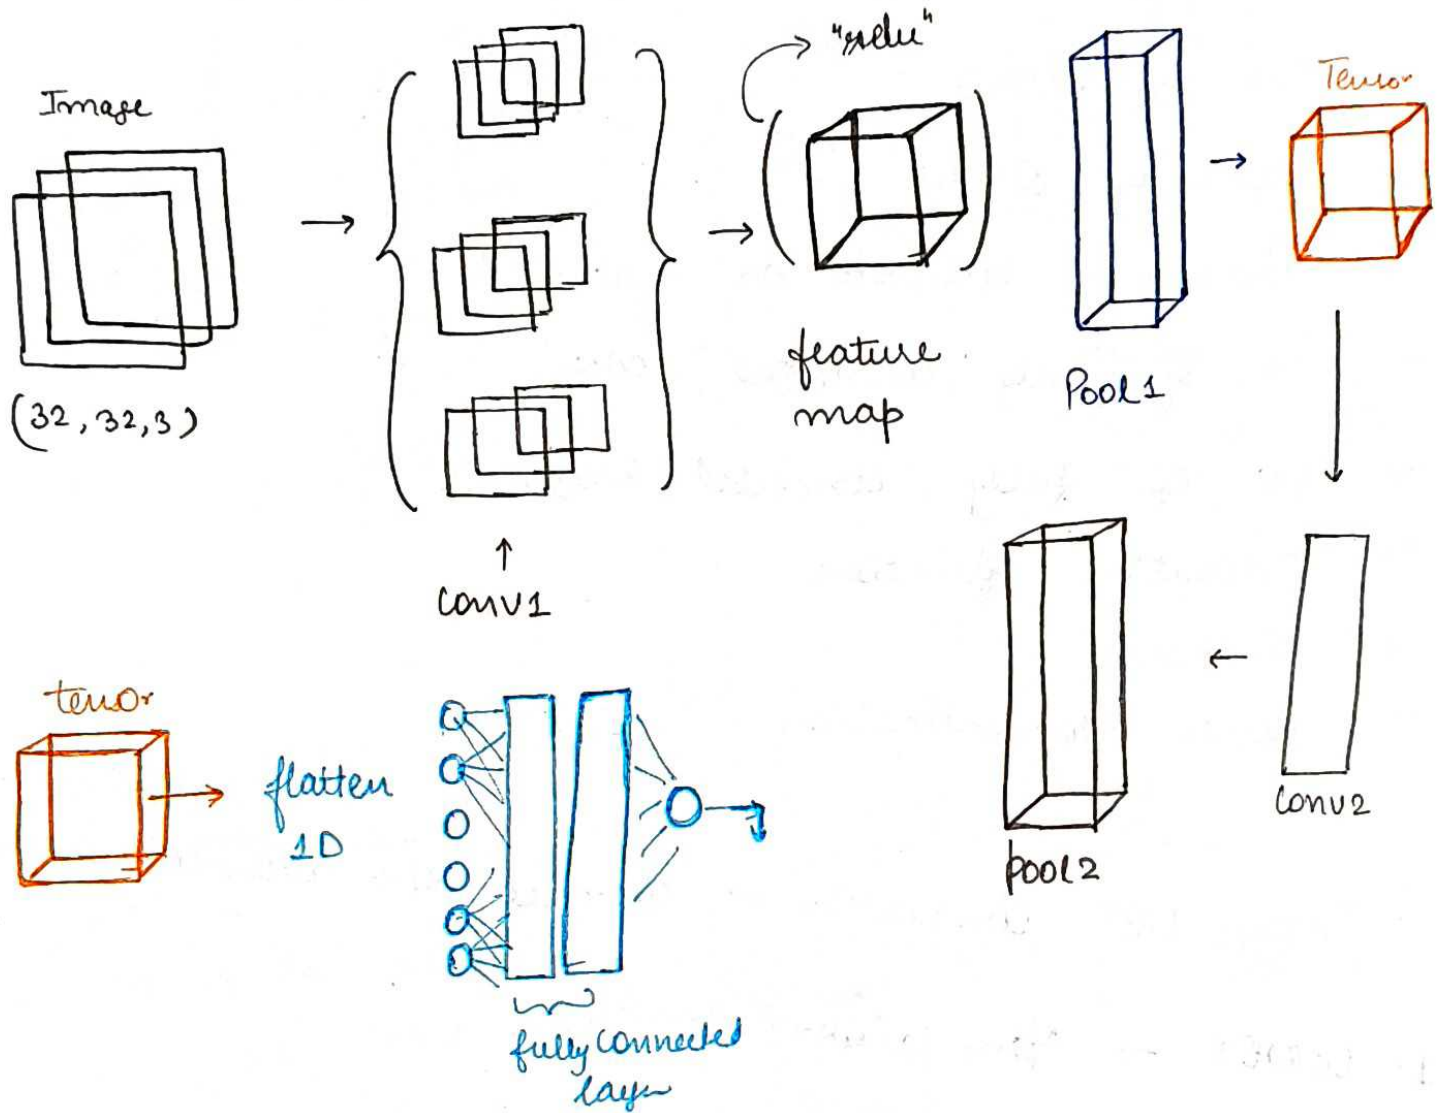 Image
(32, 32, 3)
conv1
"relu"
feature
map
Pool1
Tensor
conv2
pool2
tensor
flatten
1D
fully connected
layer